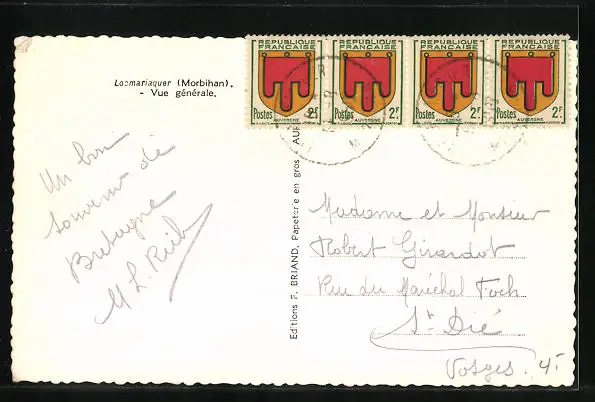 Locmariaquer (Morbihan).
- Vue générale.
REPUBLIQUE FRANCAISE
Postes 2F
AUVERGNE
REPUBLIQUE FRANCAISE
Postes 2F
AUVERGNE
REPUBLIQUE FRANCAISE
Postes 2F
AUVERGNE
REPUBLIQUE FRANCAISE
Postes 2F
AUVERGNE
Un bon
souvenir de
Bretagne
M L.
Editions F. BRIAND, Papeterie en gros
Madame et Monsieur
Robert Girardot
Rue du Maréchal Foch
St Dié
Vosges.